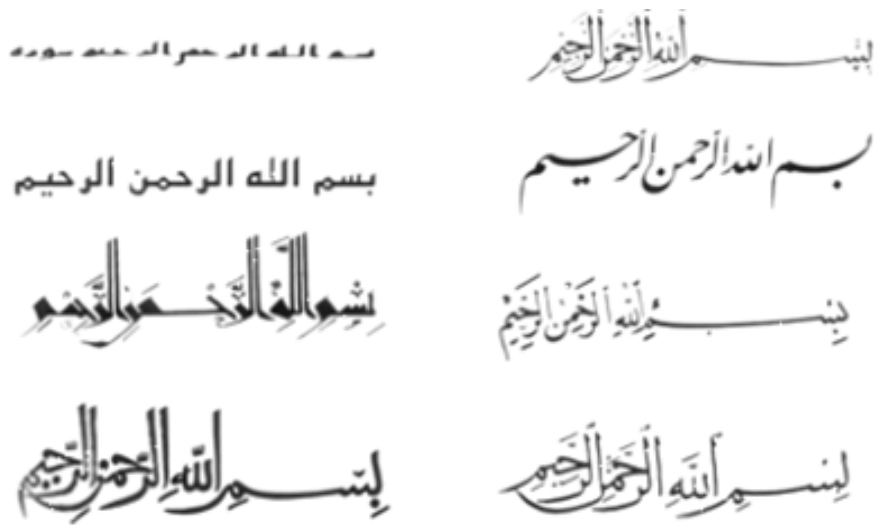 بسم الله الرحمن الرحيم
بسم الله الرحمن الرحيم سوره
بسم الله الرحمن الرحيم
بسم الله الرحمن الرحيم
بسم الله الرحمن الرحيم
بسم الله الرحمن الرحيم
بسم الله الرحمن الرحيم
بسم الله الرحمن الرحيم